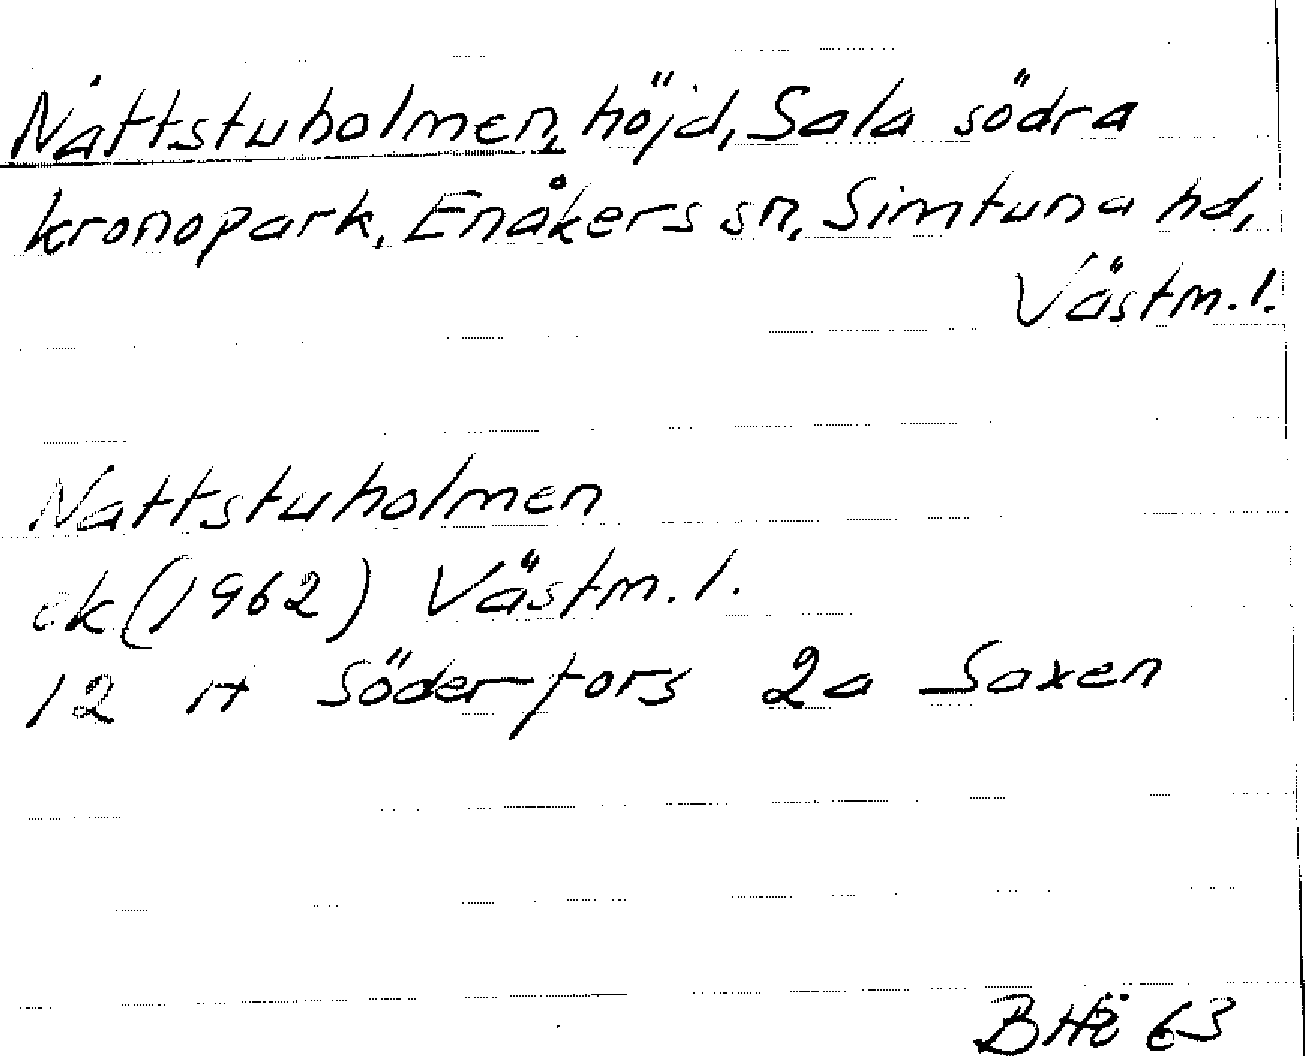 Nattstuholmen, höjd, Sala södra
kronopark, Enåkers sn, Simtuna hd,
Västm. l.
Nattstuholmen
ek (1962) Västm. l.
12 H Söderfors 2a Saxen
63